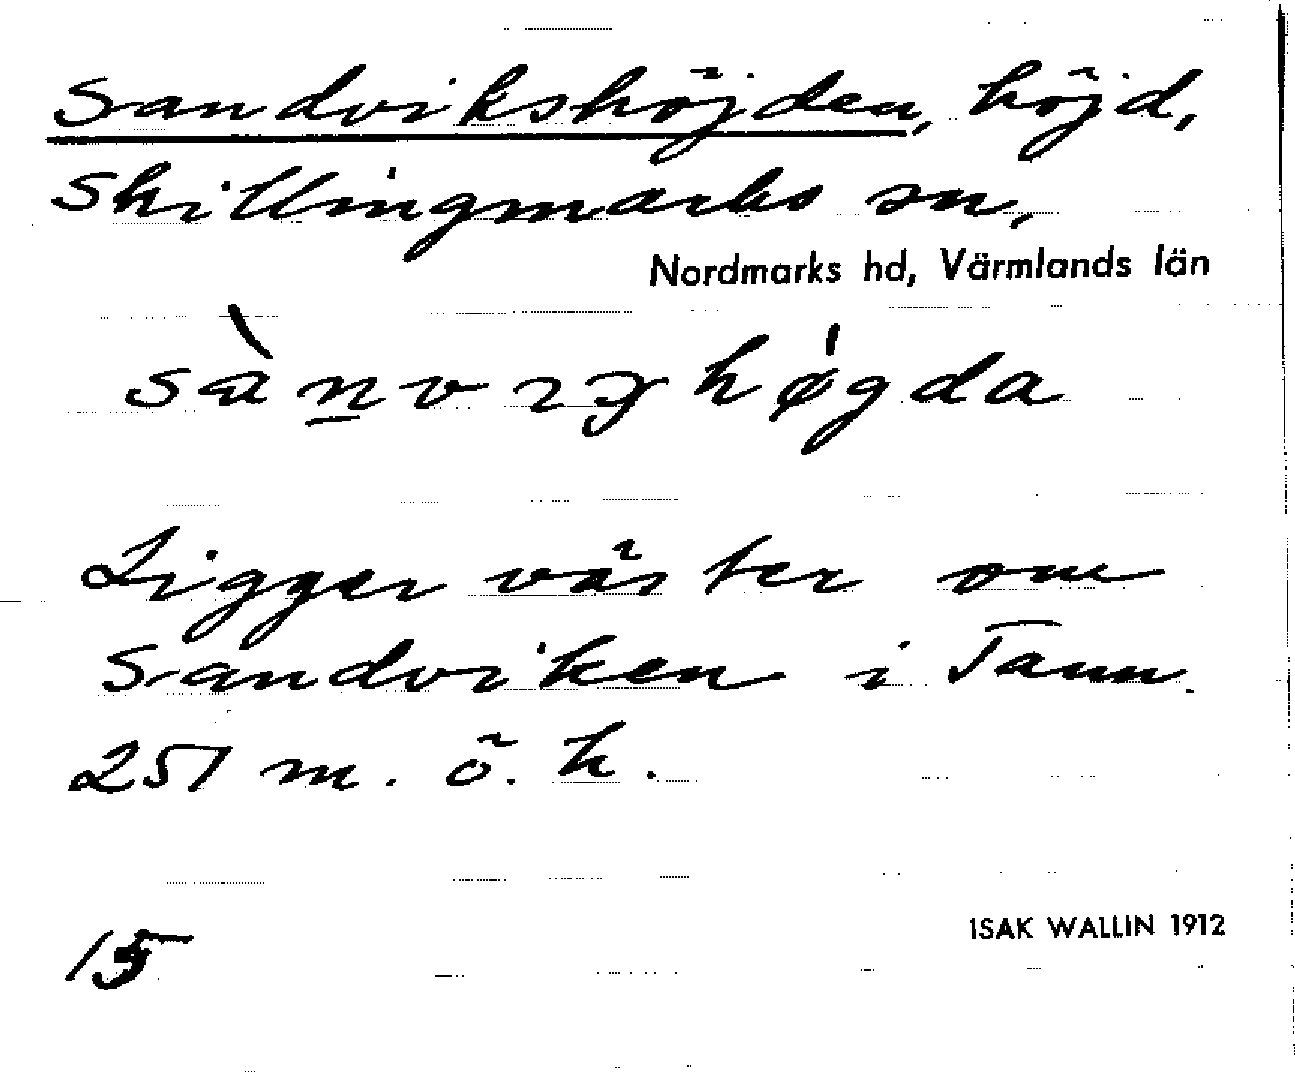 Sandvikshöjden, höjd,
Skillingmarks sn,
Nordmarks hd, Värmlands län
högda
Ligger väster om
Sandviken i Tann.
251 m. ö. h.
15
ISAK WALLIN 1912